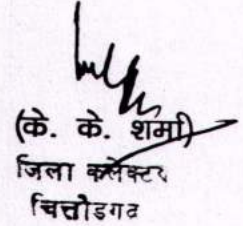 (के. के. शर्मा)
जिला कलेक्टर
चित्तोडगढ